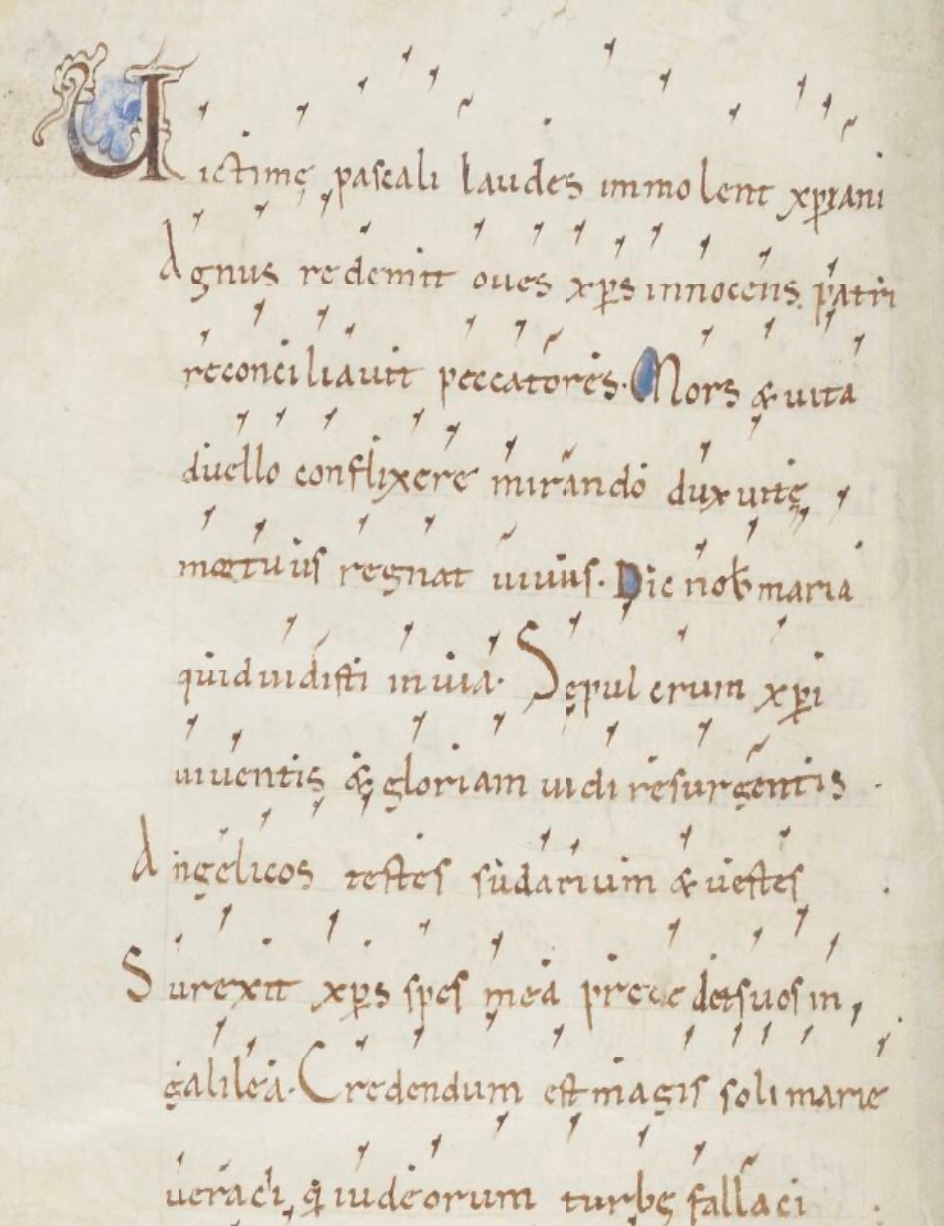 Uictimę pascali laudes immolent xp̅iani
Agnus redemit oues xp̅s innocens patri
reconciliauit peccatores. Mors & uita
duello conflixere mirando dux uitę
mortuus regnat uiuus. Dic nob̅ maria
quid uidisti in uia. Sępulcrum xp̅i
uiuentis & gloriam uidi resurgentis
Angelicos testes sudarium & uestes
Surexit xp̅s spes mea precedet suos in
galilea. Credendum est magis soli marie
ueraci, q̅ iudeorum turbę fallaci